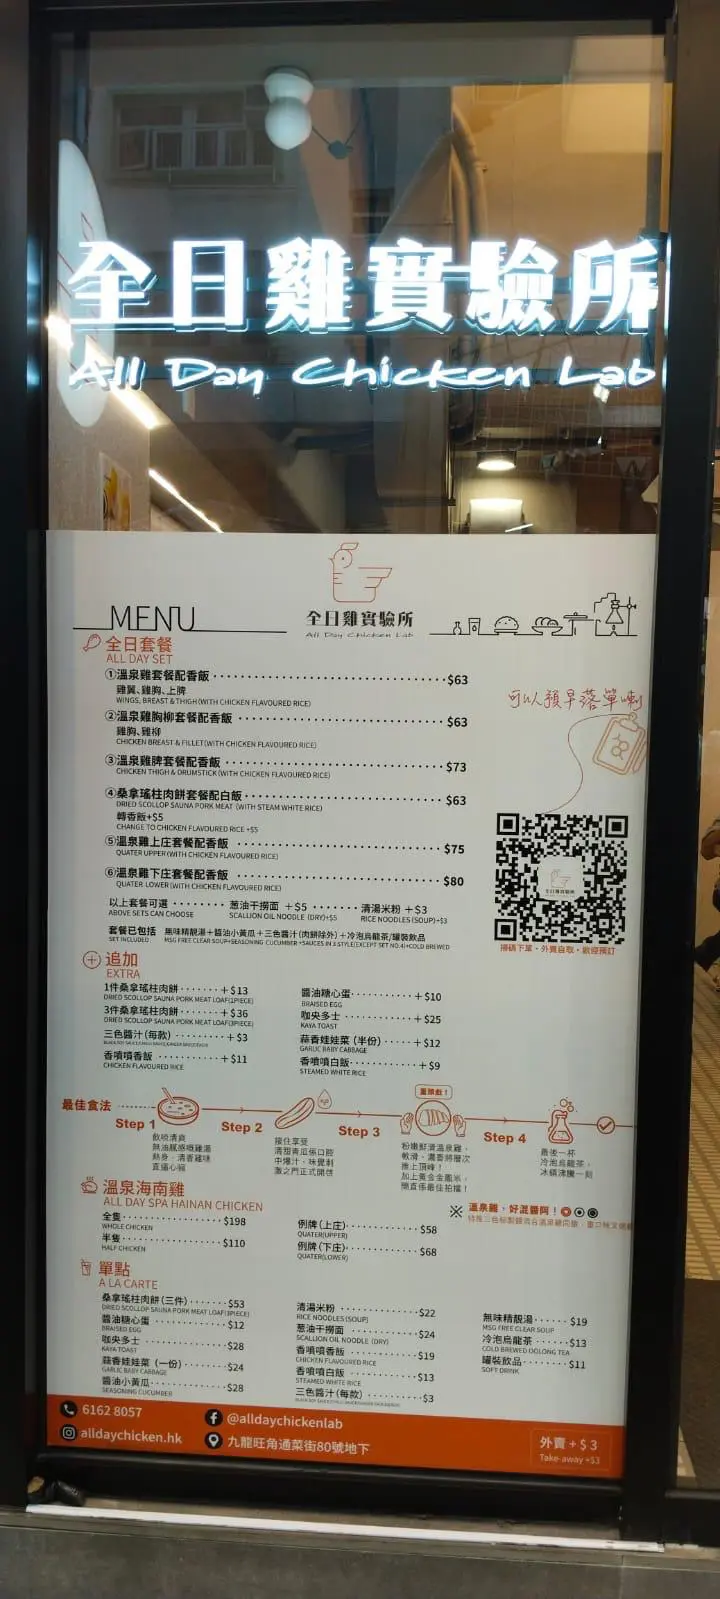 全日雞實驗所
All Day Chicken Lab
MENU
全日雞實驗所
All Day Chicken Lab
全日套餐
ALL DAY SET
①溫泉雞套餐配香飯 $63
雞翼、雞胸、上脾
WINGS, BREAST & THIGH (WITH CHICKEN FLAVOURED RICE)
②溫泉雞胸柳套餐配香飯 $63
雞胸、雞柳
CHICKEN BREAST & FILLET(WITH CHICKEN FLAVOURED RICE)
③溫泉雞脾套餐配香飯 $73
CHICKEN THIGH & DRUMSTICK (WITH CHICKEN FLAVOURED RICE)
④桑拿瑤柱肉餅套餐配白飯 $63
DRIED SCOLLOP SAUNA PORK MEAT (WITH STEAM WHITE RICE)
轉香飯+$5
CHANGE TO CHICKEN FLAVOURED RICE +$5
⑤溫泉雞上庄套餐配香飯 $75
QUATER UPPER (WITH CHICKEN FLAVOURED RICE)
⑥溫泉雞下庄套餐配香飯 $80
QUATER LOWER (WITH CHICKEN FLAVOURED RICE)
以上套餐可選 葱油干撈面 +$5 清湯米粉 +$3
ABOVE SETS CAN CHOOSE SCALLION OIL NOODLE (DRY)+$5 RICE NOODLES (SOUP)+$3
套餐已包括 無味精靚湯+醬油小黃瓜+三色醬汁(肉餅除外)+冷泡烏龍茶/罐裝飲品
SET INCLUDED MSG FREE CLEAR SOUP+SEASONING CUCUMBER+SAUCES IN 3 STYLE(EXCEPT SET NO.4)+COLD BREWED
可以預早落單喇
全日雞實驗所
掃碼下單·外賣自取·歡迎預訂
追加
EXTRA
1件桑拿瑤柱肉餅 +$13
DRIED SCOLLOP SAUNA PORK MEAT LOAF(1PIECE)
3件桑拿瑤柱肉餅 +$36
DRIED SCOLLOP SAUNA PORK MEAT LOAF(3PIECE)
三色醬汁(每款) +$3
香噴噴香飯 +$11
CHICKEN FLAVOURED RICE
醬油糖心蛋 +$10
BRAISED EGG
咖央多士 +$25
KAYA TOAST
蒜香娃娃菜 (半份) +$12
GARLIC BABY CABBAGE
香噴噴白飯 +$9
STEAMED WHITE RICE
最佳食法
Step 1
飲啖清爽
無油膩感嘅雞湯
熱身,清香雞味
直逼心脾
Step 2
接住享受
清甜青瓜係口腔
中爆汁,味覺刺
激之門正式開啓
Step 3
重頭戲!
粉嫩鮮滑溫泉雞,
軟滑、濃香將層次
推上頂峰!
加上黃金金鳳米,
簡直係最佳拍檔!
Step 4
最後一杯
冷泡烏龍茶,
冰鎮沸騰一刻
溫泉海南雞
ALL DAY SPA HAINAN CHICKEN
全隻 $198
WHOLE CHICKEN
半隻 $110
HALF CHICKEN
例牌 (上庄) $58
QUATER(UPPER)
例牌 (下庄) $68
QUATER(LOWER)
※ 溫泉雞,好混醬阿!
單點
A LA CARTE
桑拿瑤柱肉餅(三件) $53
DRIED SCOLLOP SAUNA PORK MEAT LOAF(3PIECE)
醬油糖心蛋 $12
BRAISED EGG
咖央多士 $28
KAYA TOAST
蒜香娃娃菜 (一份) $24
GARLIC BABY CABBAGE
醬油小黃瓜 $28
SEASONING CUCUMBER
清湯米粉 $22
RICE NOODLES (SOUP)
葱油干撈面 $24
SCALLION OIL NOODLE (DRY)
香噴噴香飯 $19
CHICKEN FLAVOURED RICE
香噴噴白飯 $13
STEAMED WHITE RICE
三色醬汁(每款) $3
無味精靚湯 $19
MSG FREE CLEAR SOUP
冷泡烏龍茶 $13
COLD BREWED OOLONG TEA
罐裝飲品 $11
SOFT DRINK
6162 8057
@alldaychickenlab
alldaychicken.hk
九龍旺角通菜街80號地下
外賣 +$3
Take-away +$3